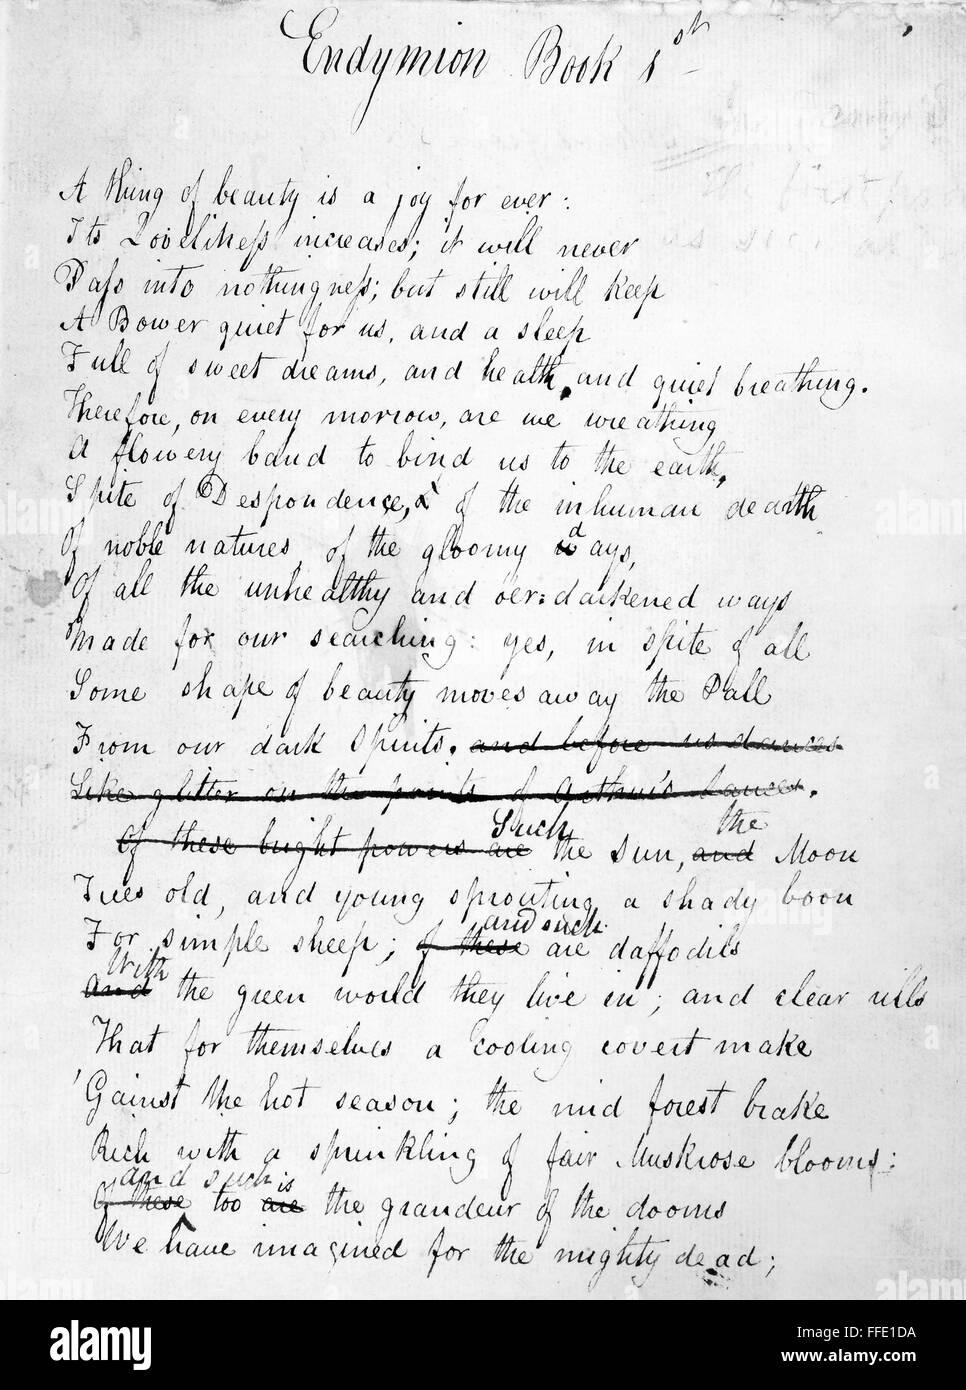 Endymion Book 1st
A thing of beauty is a joy for ever:
Its Loveliness increases; it will never
Pass into nothingness; but still will keep
A Bower quiet for us, and a sleep
Full of sweet dreams, and health, and quiet breathing.
Therefore, on every morrow, are we wreathing
A flowery band to bind us to the earth,
Spite of Despondence, & of the inhuman dearth
Of noble natures of the gloomy days,
Of all the unhealthy and oer-darkened ways
Made for our searching: yes, in spite of all
Some shape of beauty moves away the Pall
From our dark Spirits. and before us dances
Like glitter on the points of Arthur's Lances.
Such the
Of these bright powers are the Sun, and Moon
Trees old, and young sprouting a shady boon
and such
For simple sheep; of these are daffodils
With
And the green world they live in; and clear rills
That for themselves a cooling covert make
'Gainst the hot season; the mid forest brake
Rich with a sprinkling of fair Muskrose blooms:
and such is
Of these too are the grandeur of the dooms
We have imagined for the mighty dead;
alamy
alamy stock photo
FFE1DA
www.alamy.com